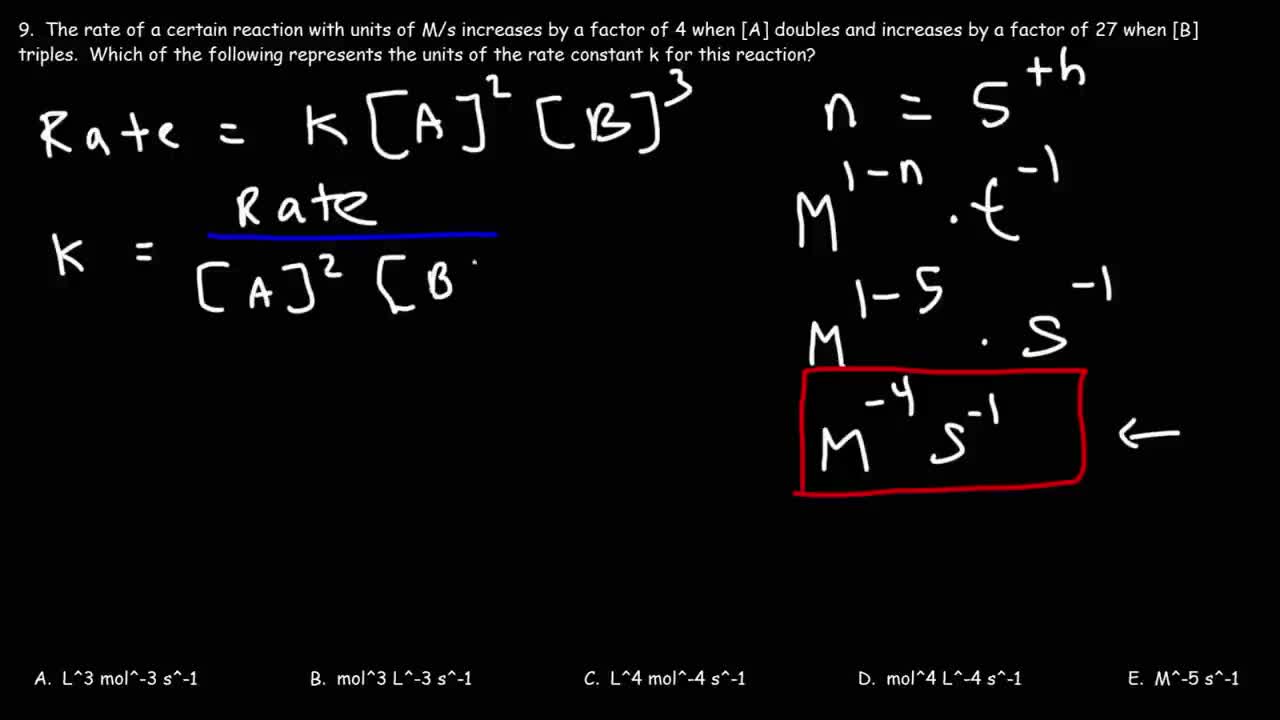 9. The rate of a certain reaction with units of M/s increases by a factor of 4 when [A] doubles and increases by a factor of 27 when [B]
triples. Which of the following represents the units of the rate constant k for this reaction?
Rate = K [A]^2 [B]^3
K = Rate / [A]^2 [B
n = 5^th
M^1-n · t^-1
M^1-5 · s^-1
M^-4 s^-1 ←
A. L^3 mol^-3 s^-1 B. mol^3 L^-3 s^-1 C. L^4 mol^-4 s^-1 D. mol^4 L^-4 s^-1 E. M^-5 s^-1